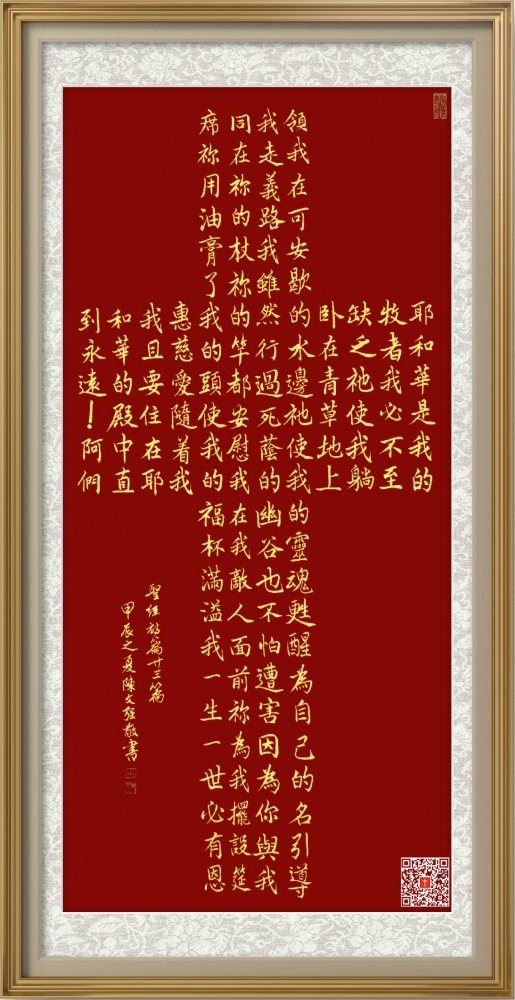 耶和華是我的
牧者我必不至
缺乏祂使我躺
卧在青草地上
領我在可安歇的水邊祂使我的靈魂甦醒為自己的名引導
我走義路我雖然行過死蔭的幽谷也不怕遭害因為你與我
同在祢的杖祢的竿都安慰我在我敵人面前祢為我擺設筵
席祢用油膏了我的頭使我的福杯滿溢我一生一世必有恩
惠慈愛隨着我
我且要住在耶
和華的殿中直
到永遠！阿們
聖經詩篇廿三篇
甲辰之夏陳文強敬書